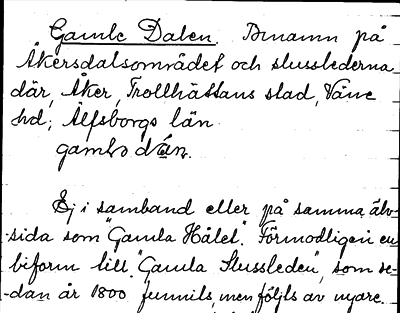 Gamle Dalen. Binamn på
Åkersdalsområdet och slusslederna
där, Åker, Trollhättans stad, Väne
hd; Älfsborgs län.
gamlə
Ej i samband eller på samma älv-
sida som "Gamla Hålet". Förmodligen en
biform till "Gamla Slussleden", som se-
dan år 1800 funnits, men följts av nyare.